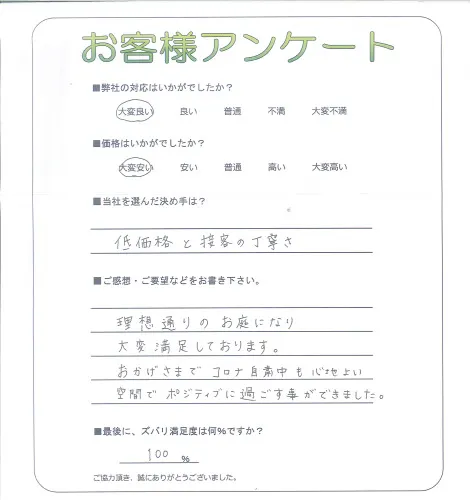 お客様アンケート
■弊社の対応はいかがでしたか？
大変良い 良い 普通 不満 大変不満
■価格はいかがでしたか？
大変安い 安い 普通 高い 大変高い
■当社を選んだ決め手は？
低価格と接客の丁寧さ
■ご感想・ご要望などをお書き下さい。
理想通りのお庭になり
大変満足しております。
おかげさまでコロナ自粛中も心地よい
空間でポジティブに過ごす事ができました。
■最後に、ズバリ満足度は何％ですか？
100 ％
ご協力頂き、誠にありがとうございました。